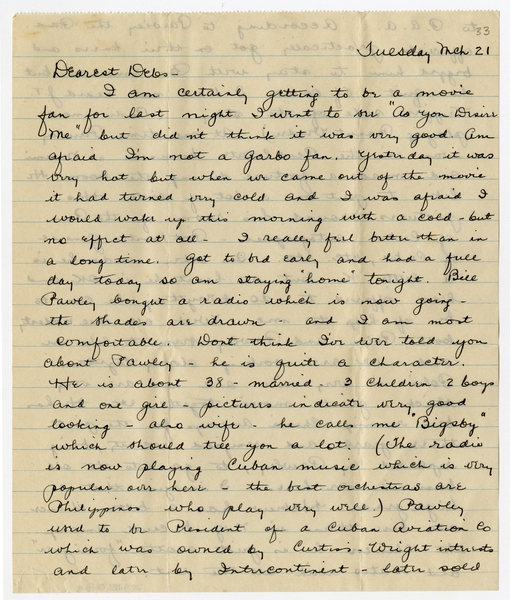 33
Tuesday Mch 21
Dearest Debs -
I am certainly getting to be a movie
fan for last night I went to see "As You Desire
Me" but didn't think it was very good Am
afraid I'm not a Garbo fan. Yesterday it was
very hot but when we came out of the movie
it had turned very cold and I was afraid I
would wake up this morning with a cold - but
no effect at all - I really feel better than in
a long time. Got to bed early and had a full
day today so am staying "home" tonight. Bill
Pawley bought a radio which is now going -
the shades are drawn - and I am most
comfortable. Dont think I've ever told you
about Pawley - he is quite a character.
He is about 38 - married, 3 children 2 boys
and one girl - pictures indicate very good
looking - also wife - he calls me "Bigsby"
which should tell you a lot. (The radio
is now playing Cuban music which is very
popular over here - the best orchestras are
Philippinos who play very well.) Pawley
used to be President of a Cuban Aviation Co
which was owned by Curtiss-Wright interests
and later by Intercontinent - later sold